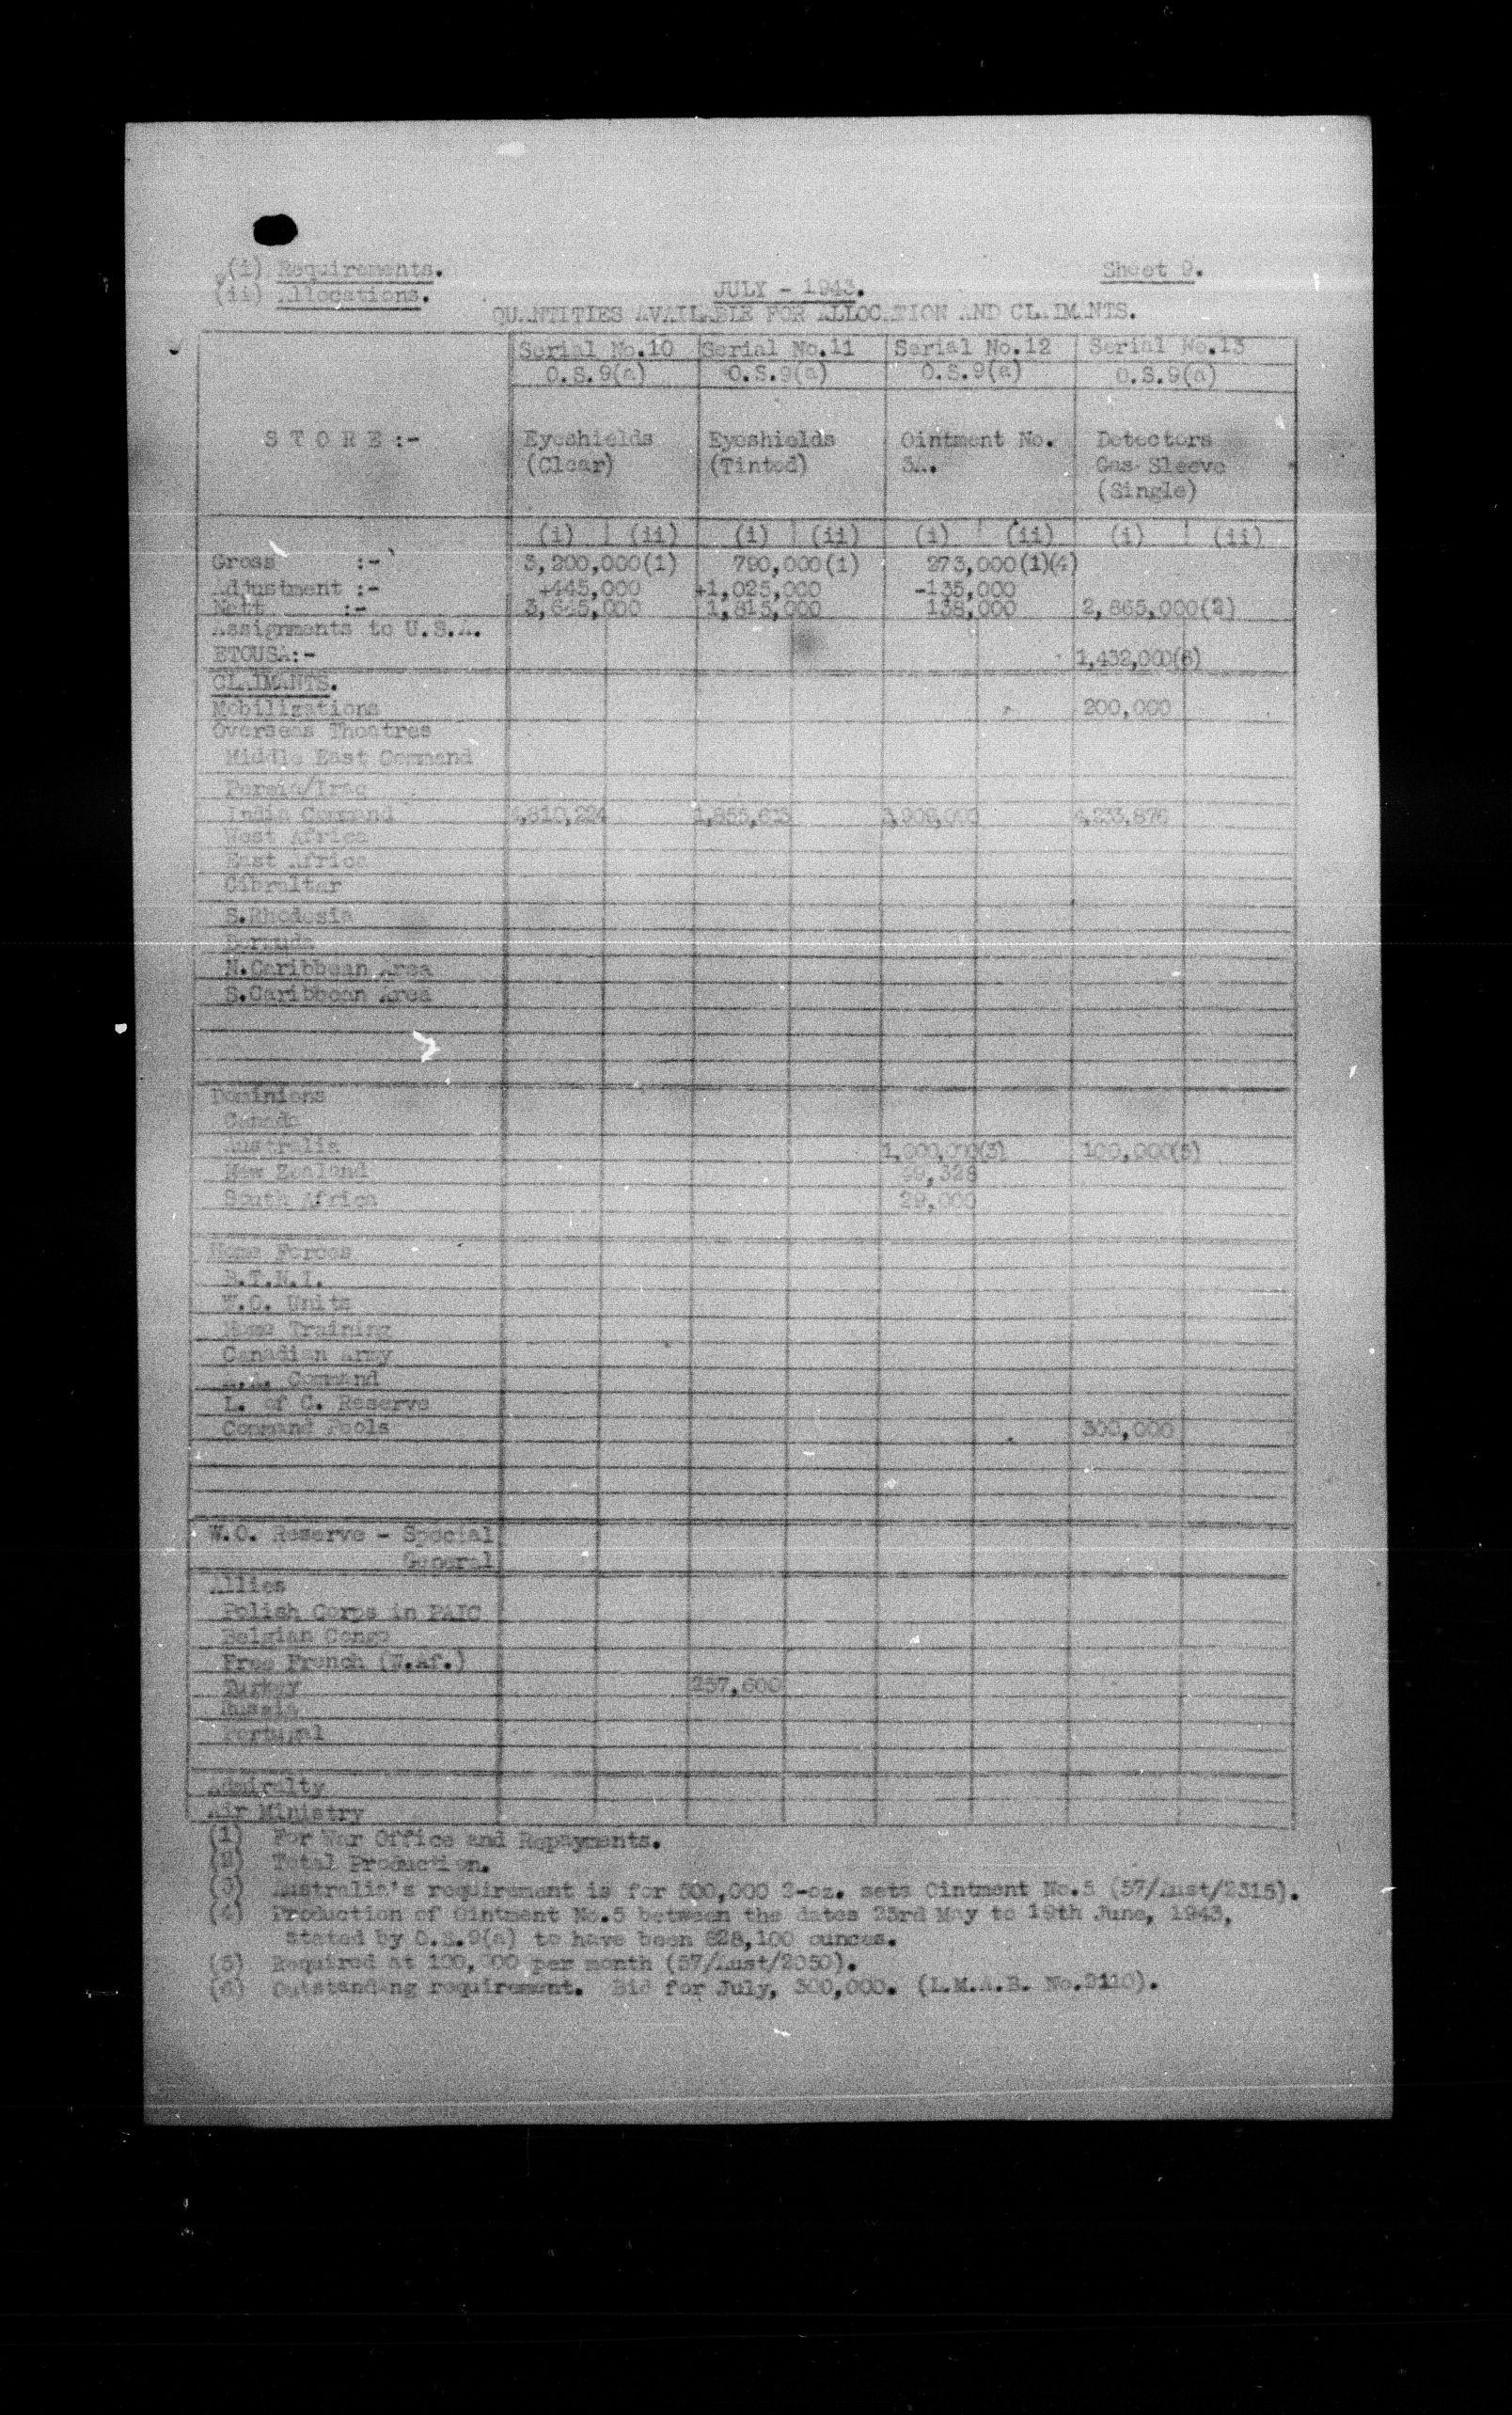 (i) Requirements.
Sheet 9.
(ii) Allocations.
JULY - 1943.
QUANTITIES AVAILABLE FOR ALLOCATION AND CLAIMANTS.
Serial No.10 Serial No.11 Serial No.12 Serial No.13
O.S.9(a) O.S.9(a) O.S.9(a) O.S.9(a)
S T O R E :- Eyeshields Eyeshields Ointment No. Detectors
(Clear) (Tinted) 3A. Gas Sleeve
(Single)
(i) (ii) (i) (ii) (i) (ii) (i) (ii)
Gross :- 3,200,000(1) 790,000(1) 273,000(1)(4)
Adjustment :- +445,000 +1,025,000 -135,000
Nett :- 3,645,000 1,815,000 138,000 2,865,000(2)
Assignments to U.S.A.
ETOUSA:- 1,432,000(6)
CLAIMANTS.
Mobilizations 200,000
Overseas Theatres
Middle East Command
Persia/Iraq
India Command 4,810,224 3,908,000 4,233,876
West Africa
East Africa
Gibraltar
S.Rhodesia
Bermuda
N.Caribbean Area
S.Caribbean Area
Dominions
Canada
Australia 1,000,000(3) 100,000(5)
New Zealand 99,328
South Africa 29,000
Home Forces
B.T.N.I.
W.O. Units
Home Training
Canadian Army
A.A. Command
L. of C. Reserve
Command Pools 300,000
W.O. Reserve - Special
General
Allies
Polish Corps in PAIC
Belgian Congo
Free French (W.Af.)
Turkey 257,600
Russia
Portugal
Admiralty
Air Ministry
(1) For War Office and Repayments.
(2) Total Production.
(3) Australia's requirement is for 500,000 2-oz. sets Ointment No.5 (57/Aust/2315).
(4) Production of Ointment No.5 between the dates 23rd May to 19th June, 1943,
stated by O.S.9(a) to have been 828,100 ounces.
(5) Required at 100,000 per month (57/Aust/2050).
(6) Outstanding requirement. Bid for July, 300,000. (L.M.A.B. No.2110).